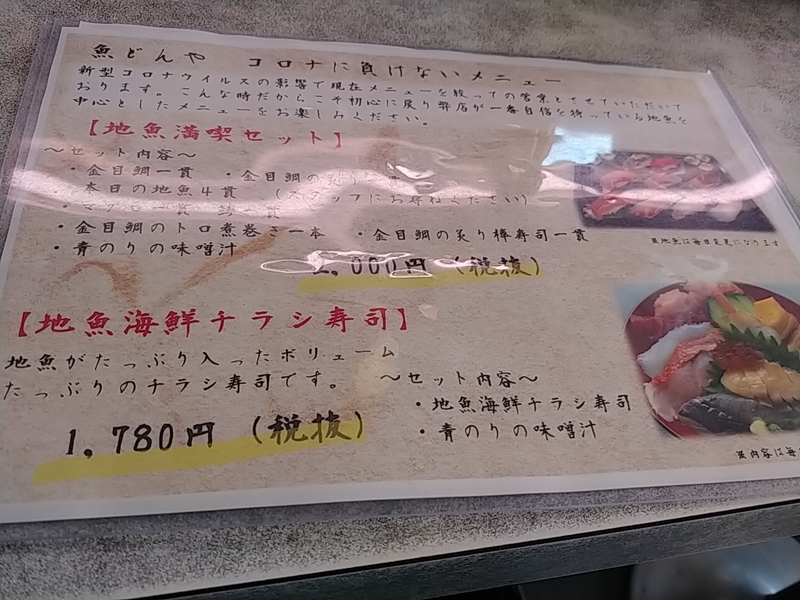 魚どんや コロナに負けないメニュー
新型コロナウイルスの影響で現在メニューを絞っての営業とさせていただいて
おります。こんな時だからこそ初心に戻り弊店が一番自信を持っている地魚を
中心としたメニューをお楽しみください。
【地魚満喫セット】
～セット内容～
・金目鯛一貫 ・金目鯛の炙り
・本日の地魚4貫 (スタッフにお尋ねください)
・マグロ一貫
・金目鯛のトロ煮巻き一本 ・金目鯛の炙り棒寿司一貫
・青のりの味噌汁
2,000円 (税抜)
※地魚は毎日変更になります
【地魚海鮮チラシ寿司】
地魚がたっぷり入ったボリューム
たっぷりのチラシ寿司です。 ～セット内容～
・地魚海鮮チラシ寿司
・青のりの味噌汁
1,780円 (税抜)
※内容は毎